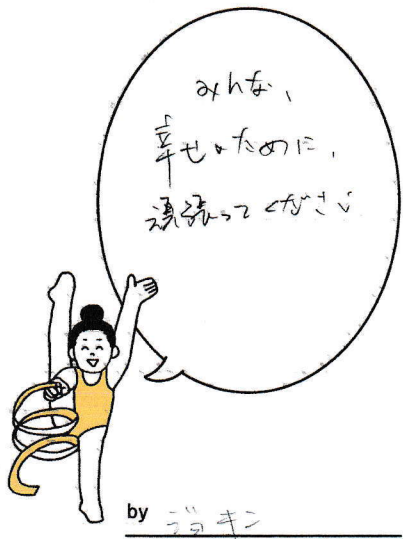 みんな、
幸せのために、
頑張ってください
by ジョキン